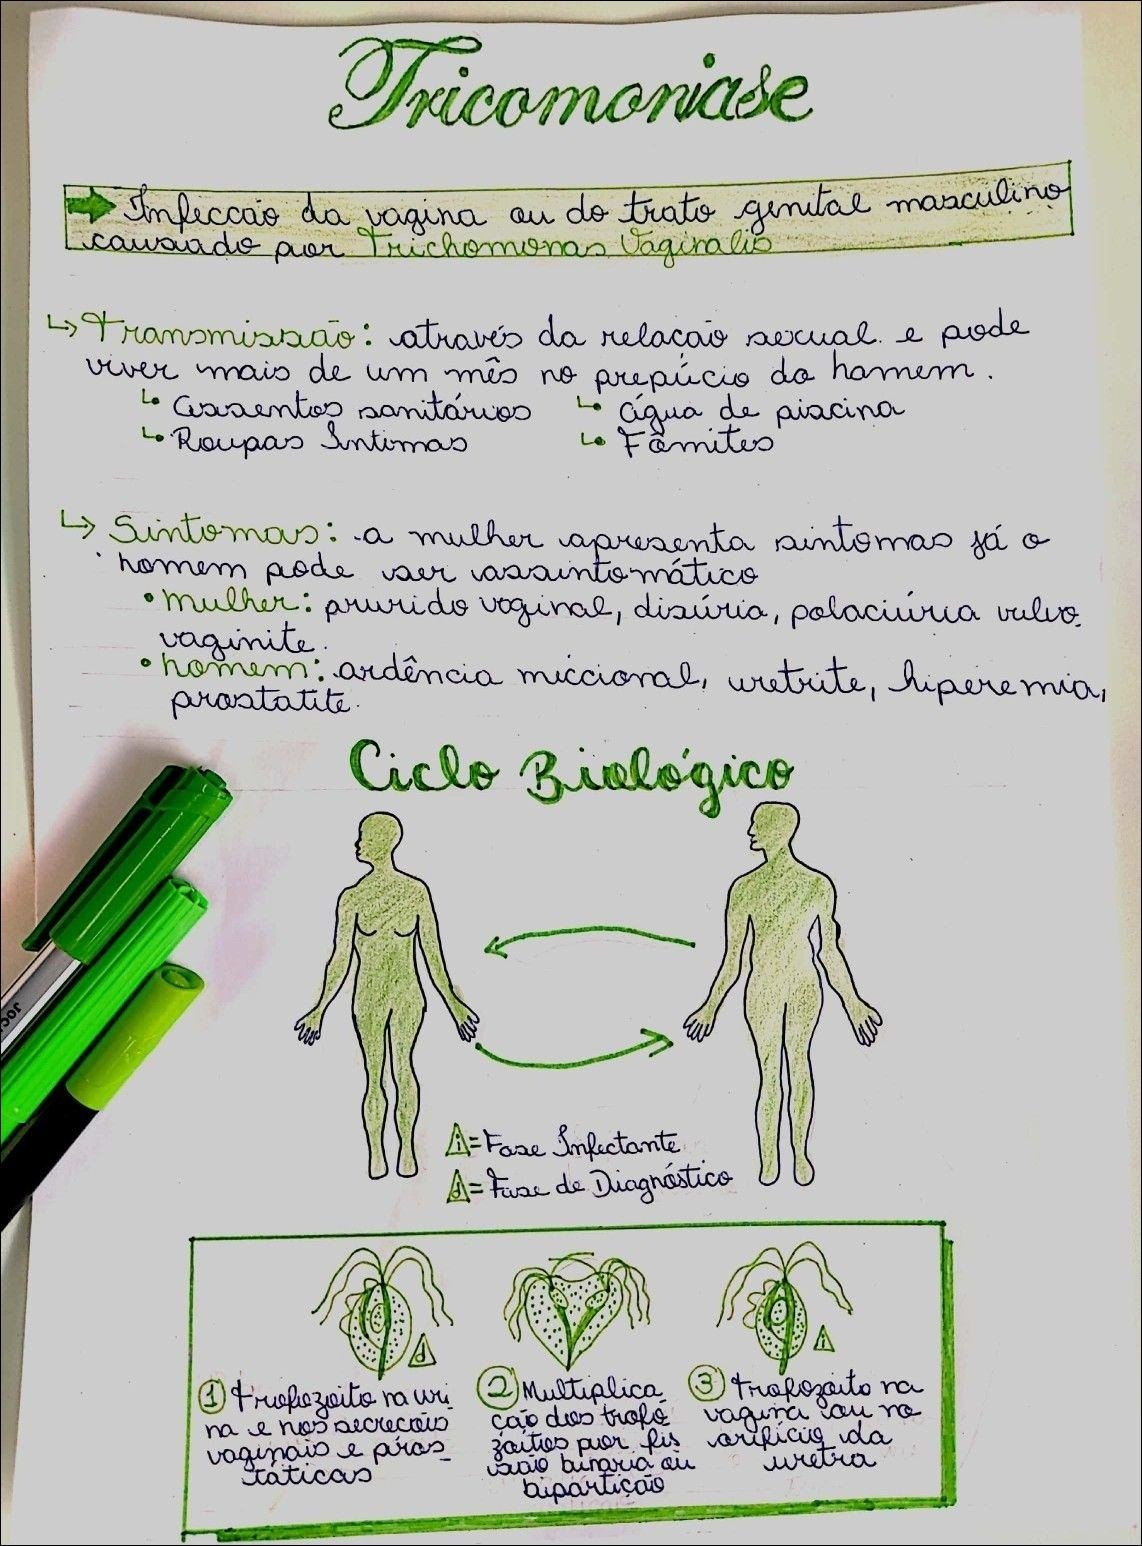 Tricomoniase
Infeccão da vagina ou do trato genital masculino
causado por Trichomonas Vaginalis
Transmissão: através da relacão sexual e pode
viver mais de um mês no prepúcio do homem.
Assentos sanitários
água de piscina
Roupas Intimas
Fômites
Sintomas: a mulher apresenta sintomas já o
homem pode ser assintomático
• Mulher: prurido vaginal, disúria, polaciúria vulvo
vaginite.
• homem: ardência miccional, uretrite, hiperemia,
prostatite.
Ciclo Biológico
i = Fase Infectante
d = Fase de Diagnóstico
d
i
1 Trofozoito na uri
na e nas secrecões
vaginais e pros_
táticas
2 Multiplica_
ção dos trofo
zoitos por fis
são binaria ou
bipartição
3 Trofozoito na
vagina ou no
orifício da
uretra